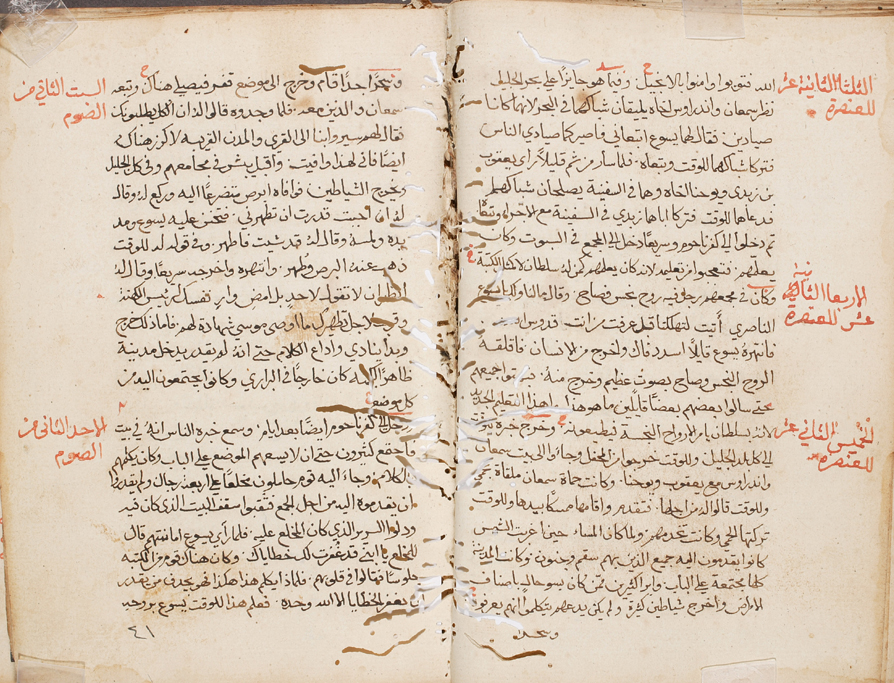 الله فتوبوا وامنوا بالانجيل وفيما هو جايزًا على بحر الجليل
الثلثا الثانية عشر
للعنصره
نظر سمعان واندراوس اخاه يلقيان شباكهما في البحر لانهما كانا
صيادين فقال لهما يسوع اتبعاني فاصيركما صيادي الناس
فتركا شباكهما للوقت وتبعاه فلما سار من ثم قليلًا راى يعقوب
بن زبدى ويوحنا اخاه وهما في السفينة يصلحان شباكهما
فدعاهما للوقت فتركا اباهما زبدي في السفينة مع الاجراء وتبعاه
ثم دخلوا الى كفرناحوم وسريعًا دخل الى المجمع في السبوت وكان
يعلمهم فتعجبوا من تعليمه لانه كان يعلمهم كمن له سلطان لا كالكتبة
الاربعا الثانية
عشر للعنصرة
وكان في مجمعهم رجل فيه روح نجس فصاح وقال ما لنا ولك يا يسوع
الناصري أتيت لتهلكنا قد عرفت من انت قدوس الله
فانتهره يسوع قايلًا اسدد فاك واخرج من الانسان فاقلقه
الروح النجس وصاح بصوت عظيم وخرج منه فبهتوا جميعهم
حتى سالوا بعضهم بعضًا قائلين ما هو هذا ما هذا التعليم الجديد
الخميس الثاني عشر
للعنصره
لانه بسلطان يامر الارواح النجسة فيطيعونه وخرج خبره للوقت
في كل بلد الجليل وللوقت خرجوا من المجمع وجاءوا الى بيت سمعان
واندراوس مع يعقوب ويوحنا وكانت حماة سمعان ملقاة بحمى
وللوقت قالوا له من اجلها فتقدم واقامها مسكًا بيدها وللوقت
تركتها الحمى وكانت تخدمهم ولما كان المساء حين غربت الشمس
كانوا يقدمون اليه جميع الذين بهم سقم وجنون وكانت المدينة
كلها مجتمعة على الباب وابرا كثيرين ممن كان بسو حال باصناف
الامراض واخرج شياطين كثيرة ولم يكن يدعهم يتكلموا لانهم يعرفونه
وسحرا
وسحرًا جدًا قام وخرج الى موضع قفر فيصلي هناك وتبعه
السبت الثاني من
الصوم
سمعان والذين معه فلما وجدوه قالوا له ان الكل يطلبونك
فقال لهم سيروا بنا الى القرى والمدن القريبه لاكرز هناك
ايضًا فاني لهذا وافيت واقبل يبشر في مجامعهم وفي كل الجليل
ويخرج الشياطين فوافاه ابرص متضرعًا اليه وركع له وقال
له ان احببت قدرت ان تطهرني فتحنن عليه يسوع ومد
يده ولمسه وقال له قد شئت فاطهر وفي قوله له للوقت
ذهب عنه البرص وطهر وانتهره واخرجه سريعًا وقال له
انظر ان لا تقوله لاحدٍ بل امض وارِ نفسك لرئيس الكهنة
وقرب لاجل تطهيرك ما اوصى موسى شهادة لهم فاما ذلك خرج
وبدأ ينادي واذاع الكلام حتى انه لم يقدر يدخل مدينة
ظاهرًا لكنه كان خارجًا في البراري وكانوا يجتمعون اليه من
كل موضع
الاحد الثاني من
الصوم
ودخل الى كفرناحوم ايضًا بعد ايام وسمع خبره الناس انه في بيت
فاجتمع كثيرون حتى ان لا يسعهم الموضع على الباب وكان يكلمهم
بالكلام وجاء اليه قوم حاملون مخلعًا على اربعة رجال ولم يقدروا
ان يقدموه اليه من اجل الجمع فنقبوا سقف البيت الذي كان فيه
ودلوا السرير الذي كان المخلع عليه فلما راى يسوع امانتهم قال
للمخلع يا ابني قد غُفرت لك خطاياك وكان هناك قوم من الكتبه
جلوسًا فقالوا في قلوبهم فلماذا يكلم هذا هكذا انه يجدف من يقدر
ان يغفر الخطايا الا الله وحده فعلم هذا للوقت يسوع بروحه
٤١